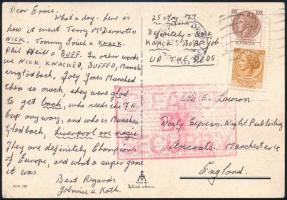 Dear Ernie,
What a day - here is
how it went Terry McDermott a
NICK. Tommy Smith a KNACK.
Phil Neal a BUFF. In other words
we NICK, KNACKED, BUFFED, Monchen
gladbach, Joey Jones Munched
them so much, they were glad
to get back, who needs the F.A.
Cup any way, and who is Monchen
Gladbach, Liverpool are magic
They are definitely Champions
of Europe, and what a super game
it was
Best Regards
Johnnie & Kath
25 May 1977
Definitely a NICK
KNACKED BUFF Job.
UP THE REDS
E. Lawson
Daily Express, Night Publishing
Ancoats, Manchester 4
England.